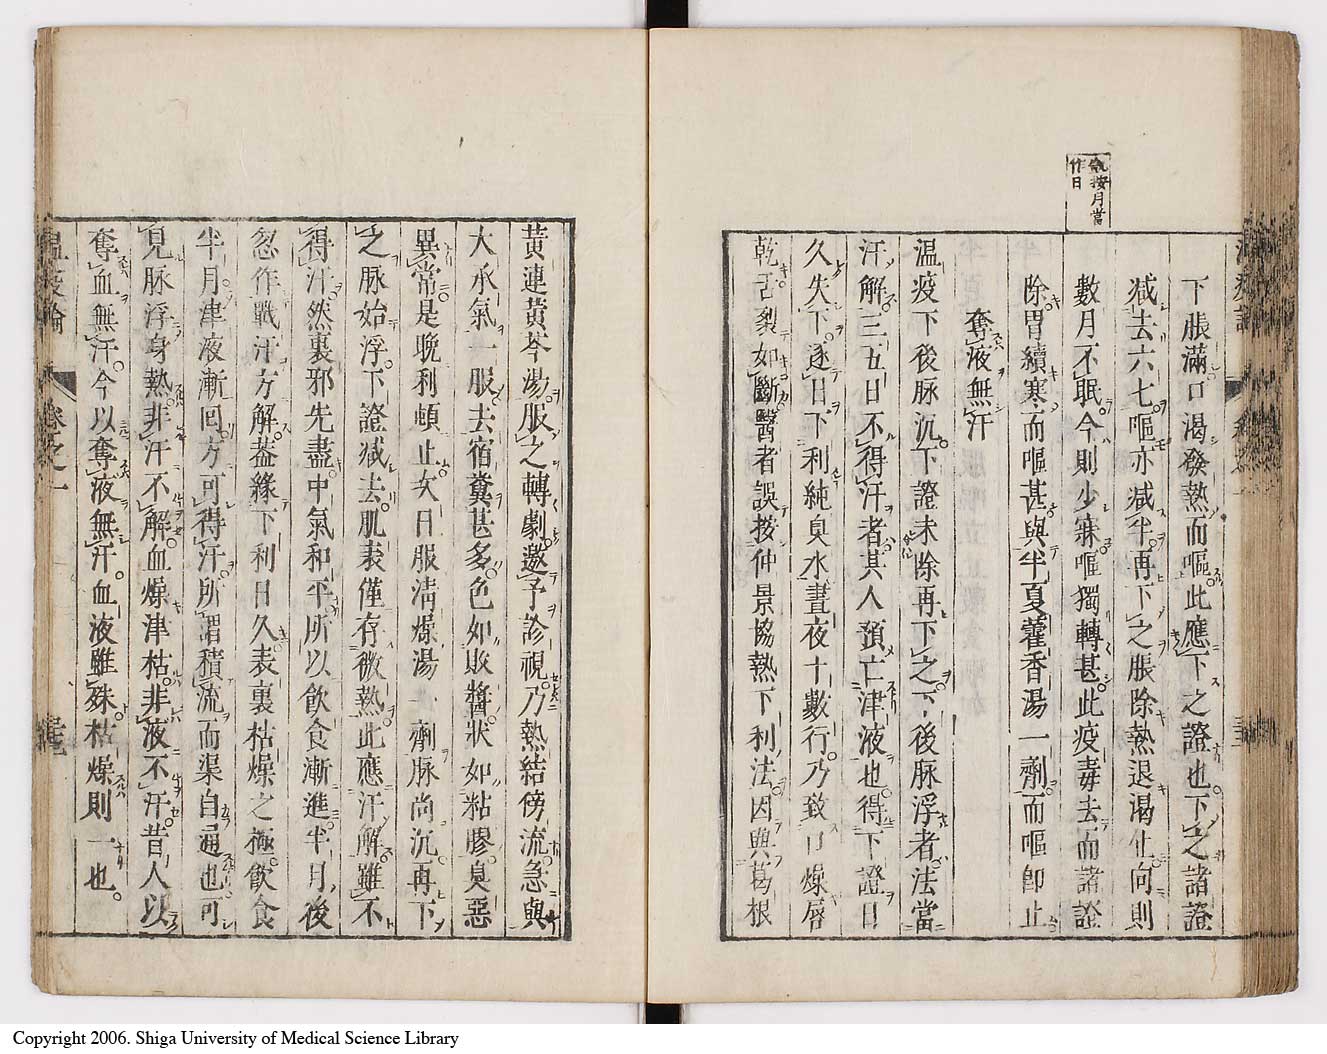 下脹滿口渴發熱而嘔此應下之證也下之諸證
減去六七嘔亦減半再下之脹除熱退渴止向則
數月不眠今則少寐嘔獨轉甚此疫毒去而諸證
除胃續寒而嘔甚與半夏藿香湯一劑而嘔卽止
按月當
作日
奪液無汗
溫疫下後脉沉下證未除再下之下後脉浮者法當
汗解三五日不得汗者其人預亡津液也得下證日
久失下逐日下利純臭水晝夜十數行乃致口燥唇
乾舌裂如斷醫者誤按仲景協熱下利法因與葛根
黃連黃芩湯服之轉劇邀予診視乃熱結傍流急與
大承氣一服去宿糞甚多色如敗醬狀如粘膠臭惡
異常是晚利頓止次日服淸燥湯一劑脉尚沉再下
之脉始浮下證減去肌表僅存微熱此應汗解雖不
得汗然裏邪先盡中氣和平所以飮食漸進半月後
忽作戰汗方解蓋緣下利日久表裏枯燥之極飮食
半月津液漸回方可得汗所謂積流而渠自通也可
見脉浮身熱非汗不解血燥津枯非液不汗昔人以
奪血無汗今以奪液無汗血液雖殊枯燥則一也
溫疫論 卷之一